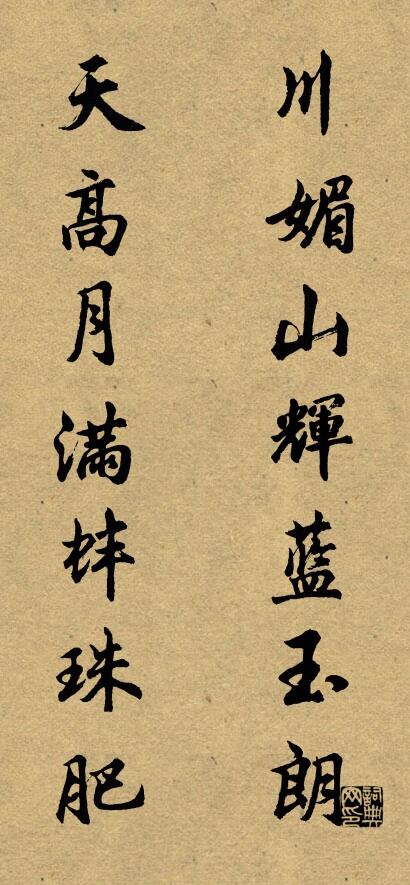 川媚山輝藍玉朗
天高月滿蚌珠肥
詞典網印